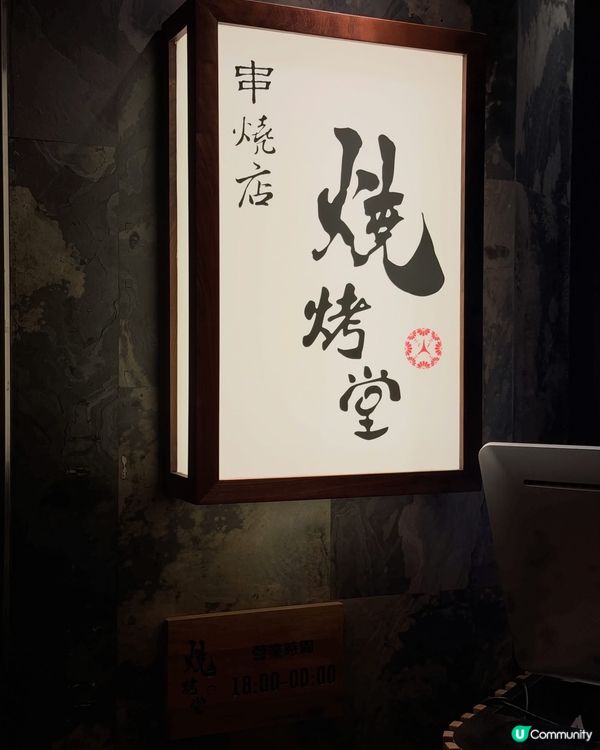 串燒店
燒烤堂
燒烤堂
營業時間
18:00-00:00
U Community